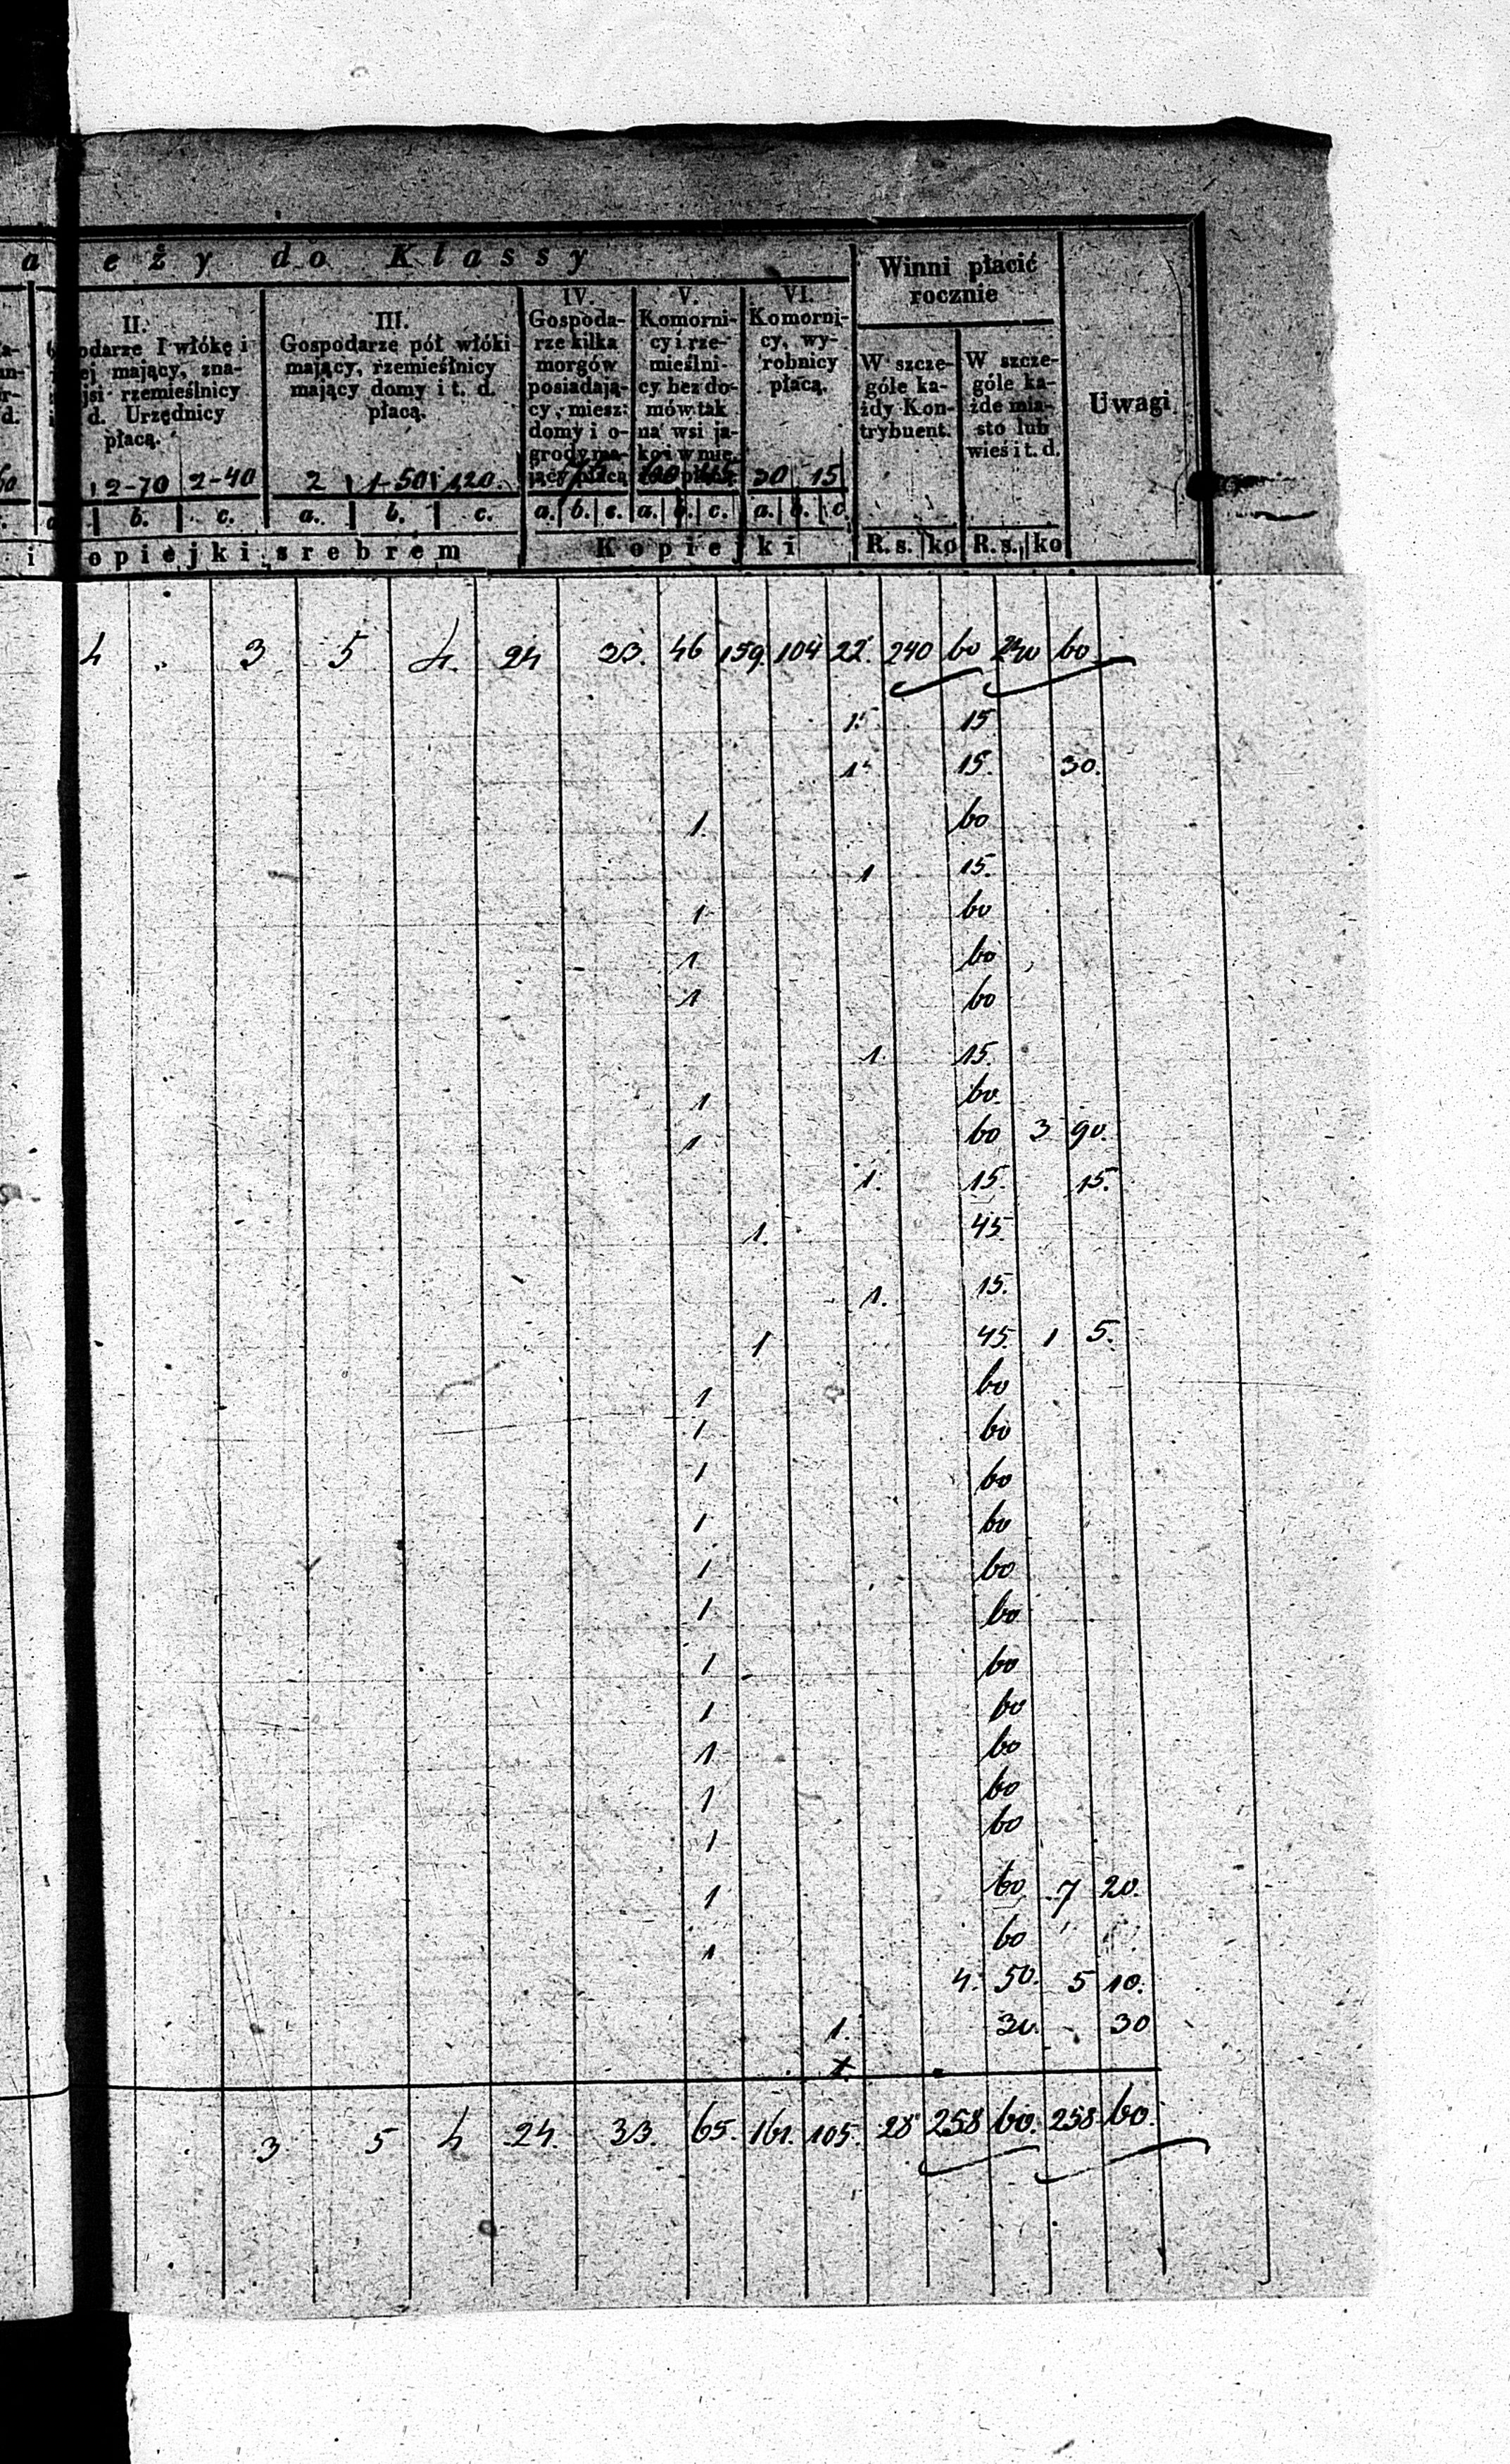 a eży do Klassy
Winni płacić rocznie
Uwagi
II.
odarze I włókę i
ej mający, zna-
jsi rzemieślnicy
d. Urzędnicy
płacą.
III.
Gospodarze pół włóki
mający, rzemieślnicy
mający domy i t. d.
płacą.
IV.
Gospoda-
rze kilka
morgów
posiadają-
cy, miesz:
domy i o-
grody ma-
jący płacą
V.
Komorni-
cy i rze-
mieślni-
cy bez do-
mów tak
na wsi ja-
ko i w mie.
VI.
Komorni-
cy, wy-
robnicy
płacą.
W szcze-
góle ka-
żdy Kon-
trybuent.
W szcze-
góle ka-
żde mia-
sto lub
wieś i t. d.
2-70 2-40 2 1-50 1.20. 30 15
b. c. a. b. c. a. b. c. a. b. c. a. b. c.
i opiejki srebrem Kopiejki R. s. ko R. s. ko
4 „ 3 5 4. 24 33. 46 159. 104 22. 240 60 240 60
15 15
15 15. 30.
1. 60
1 15.
1 60
1 60
1 60
1. 15.
1 60.
1 60 3 90.
1. 15. 15.
1. 45
1. 15.
1 45. 1 5.
1 60
1 60
1 60
1 60
1 60
1 60
1 60
1 60
1 60
1 60
1 60
1 60 7 20.
1 60
4. 50. 5 10.
1. 30. 30
3 5 4 24. 33. 65. 161. 105. 28 258 60. 258 60.